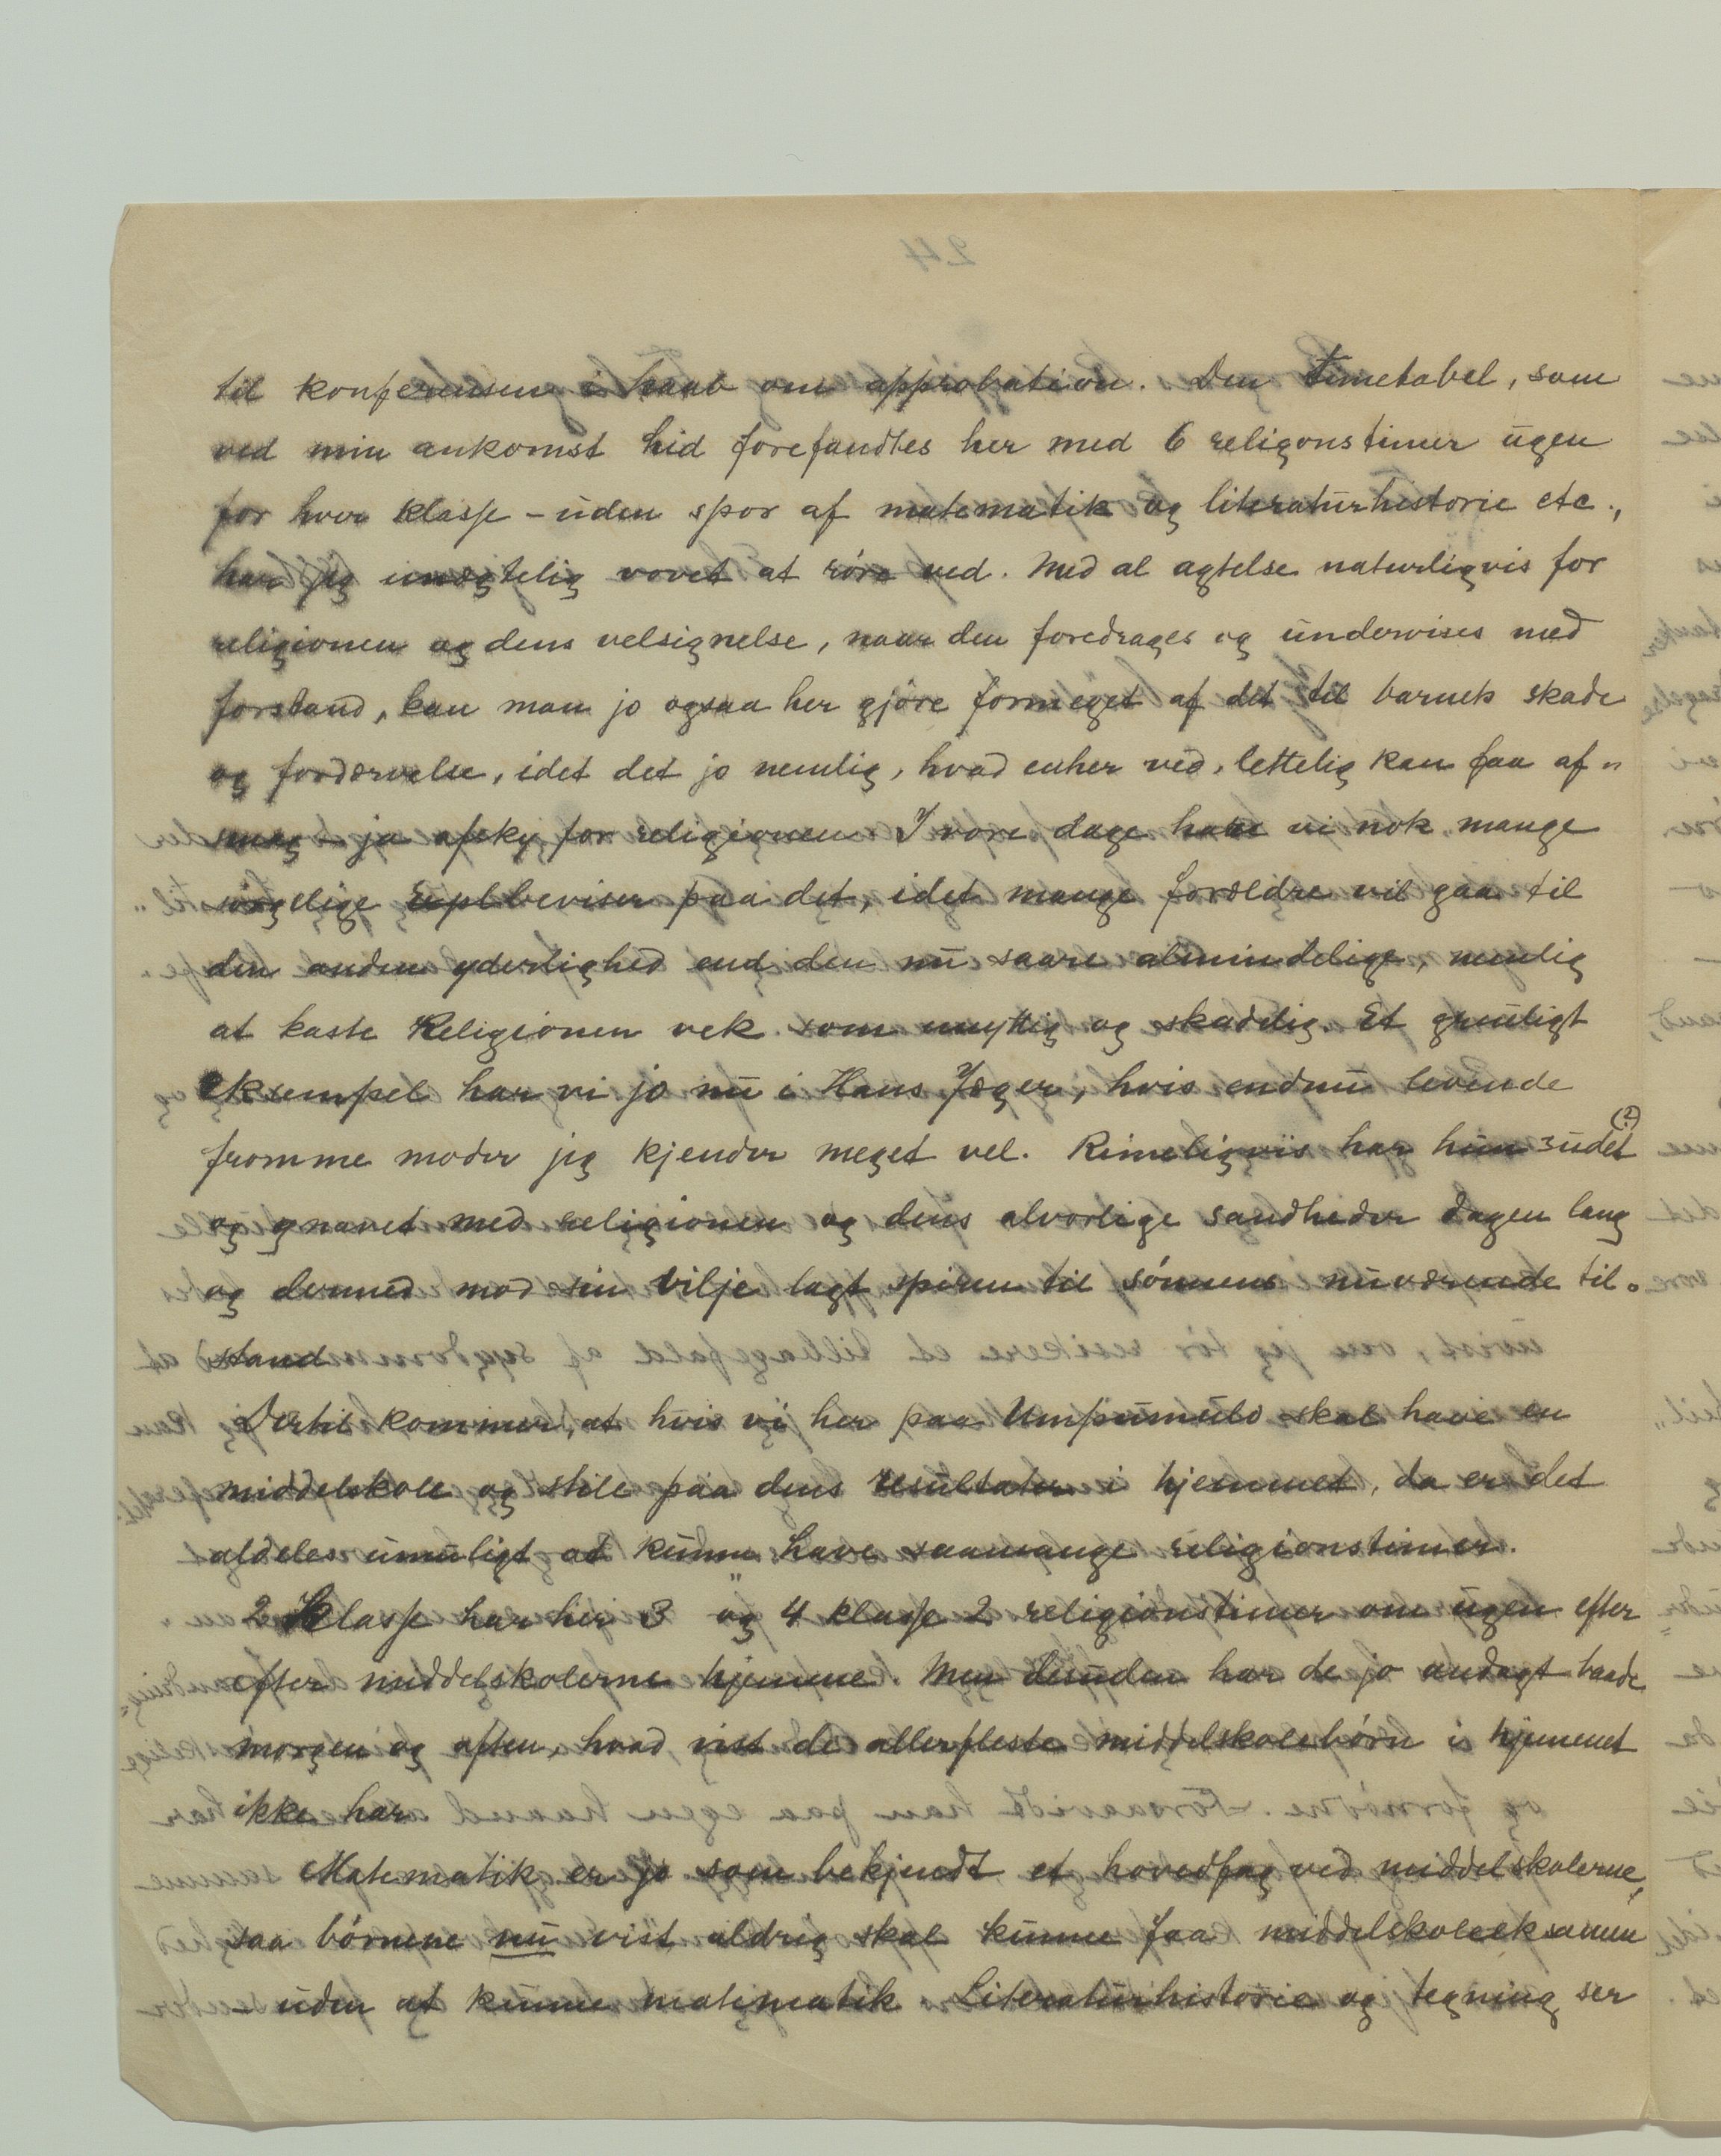 til konferensen i haab om approbation. Den timetabel, som
ved min ankomst hid forefandtes her med 6 religonstimer ugen
for hver klasse – uden spor af matematik og literaturhistorie etc.,
har jeg unægtelig vovet at röre ved. Med al agtelse naturligvis for
religionen og dens velsignelse, naar den foredrages og undervises med
forstand, kan man jo ogsaa her gjöre formeget af det til barnets skade
og fordærvelse, idet det jo nemlig, hvad enher ved, lettelig kan faa af„
smag – ja afsky for religionen. I vore dage have vi nok mange
sörgelige beviser paa det, idet mange forældre vil gaa til
den anden yderlighed end den nu saare almindelige, nemlig
at kaste Religionen vek som unyttig og skadelig. Et gruligt
eksempel har vi jo nu i Hans Jæger, hvis endnu levende
fromme moder jeg kjender meget vel. Rimeligviis har hun sudet (?)
og gnavet med religionen og dens alvorlige sandheder dagen lang
og dermed mod sin vilje lagt spiren til sönnens nuværende til„
stand
Dertil kommer, at hvis vi her paa Umpumulo skal have en
middelskole og stile paa dens resultater i hjemmet, da er det
aldeles umuligt at kunne have saamange religionstimer.
2 Klasse har her 3 og 4 klasse 2 religionstimer om ugen efter
efter middelskolerne hjemme. Men desuden har de jo andagt baade
morgen og aften, hvad vist de allerfleste middelskolebörn i hjemmet
ikke har
Matematik er jo som bekjendt et hovedfag ved middelskolerne,
saa börnene nu vist aldrig skal kunne faa middelskoleeksamen
– uden at kunne matematik. Literaturhistorie og tegning ser